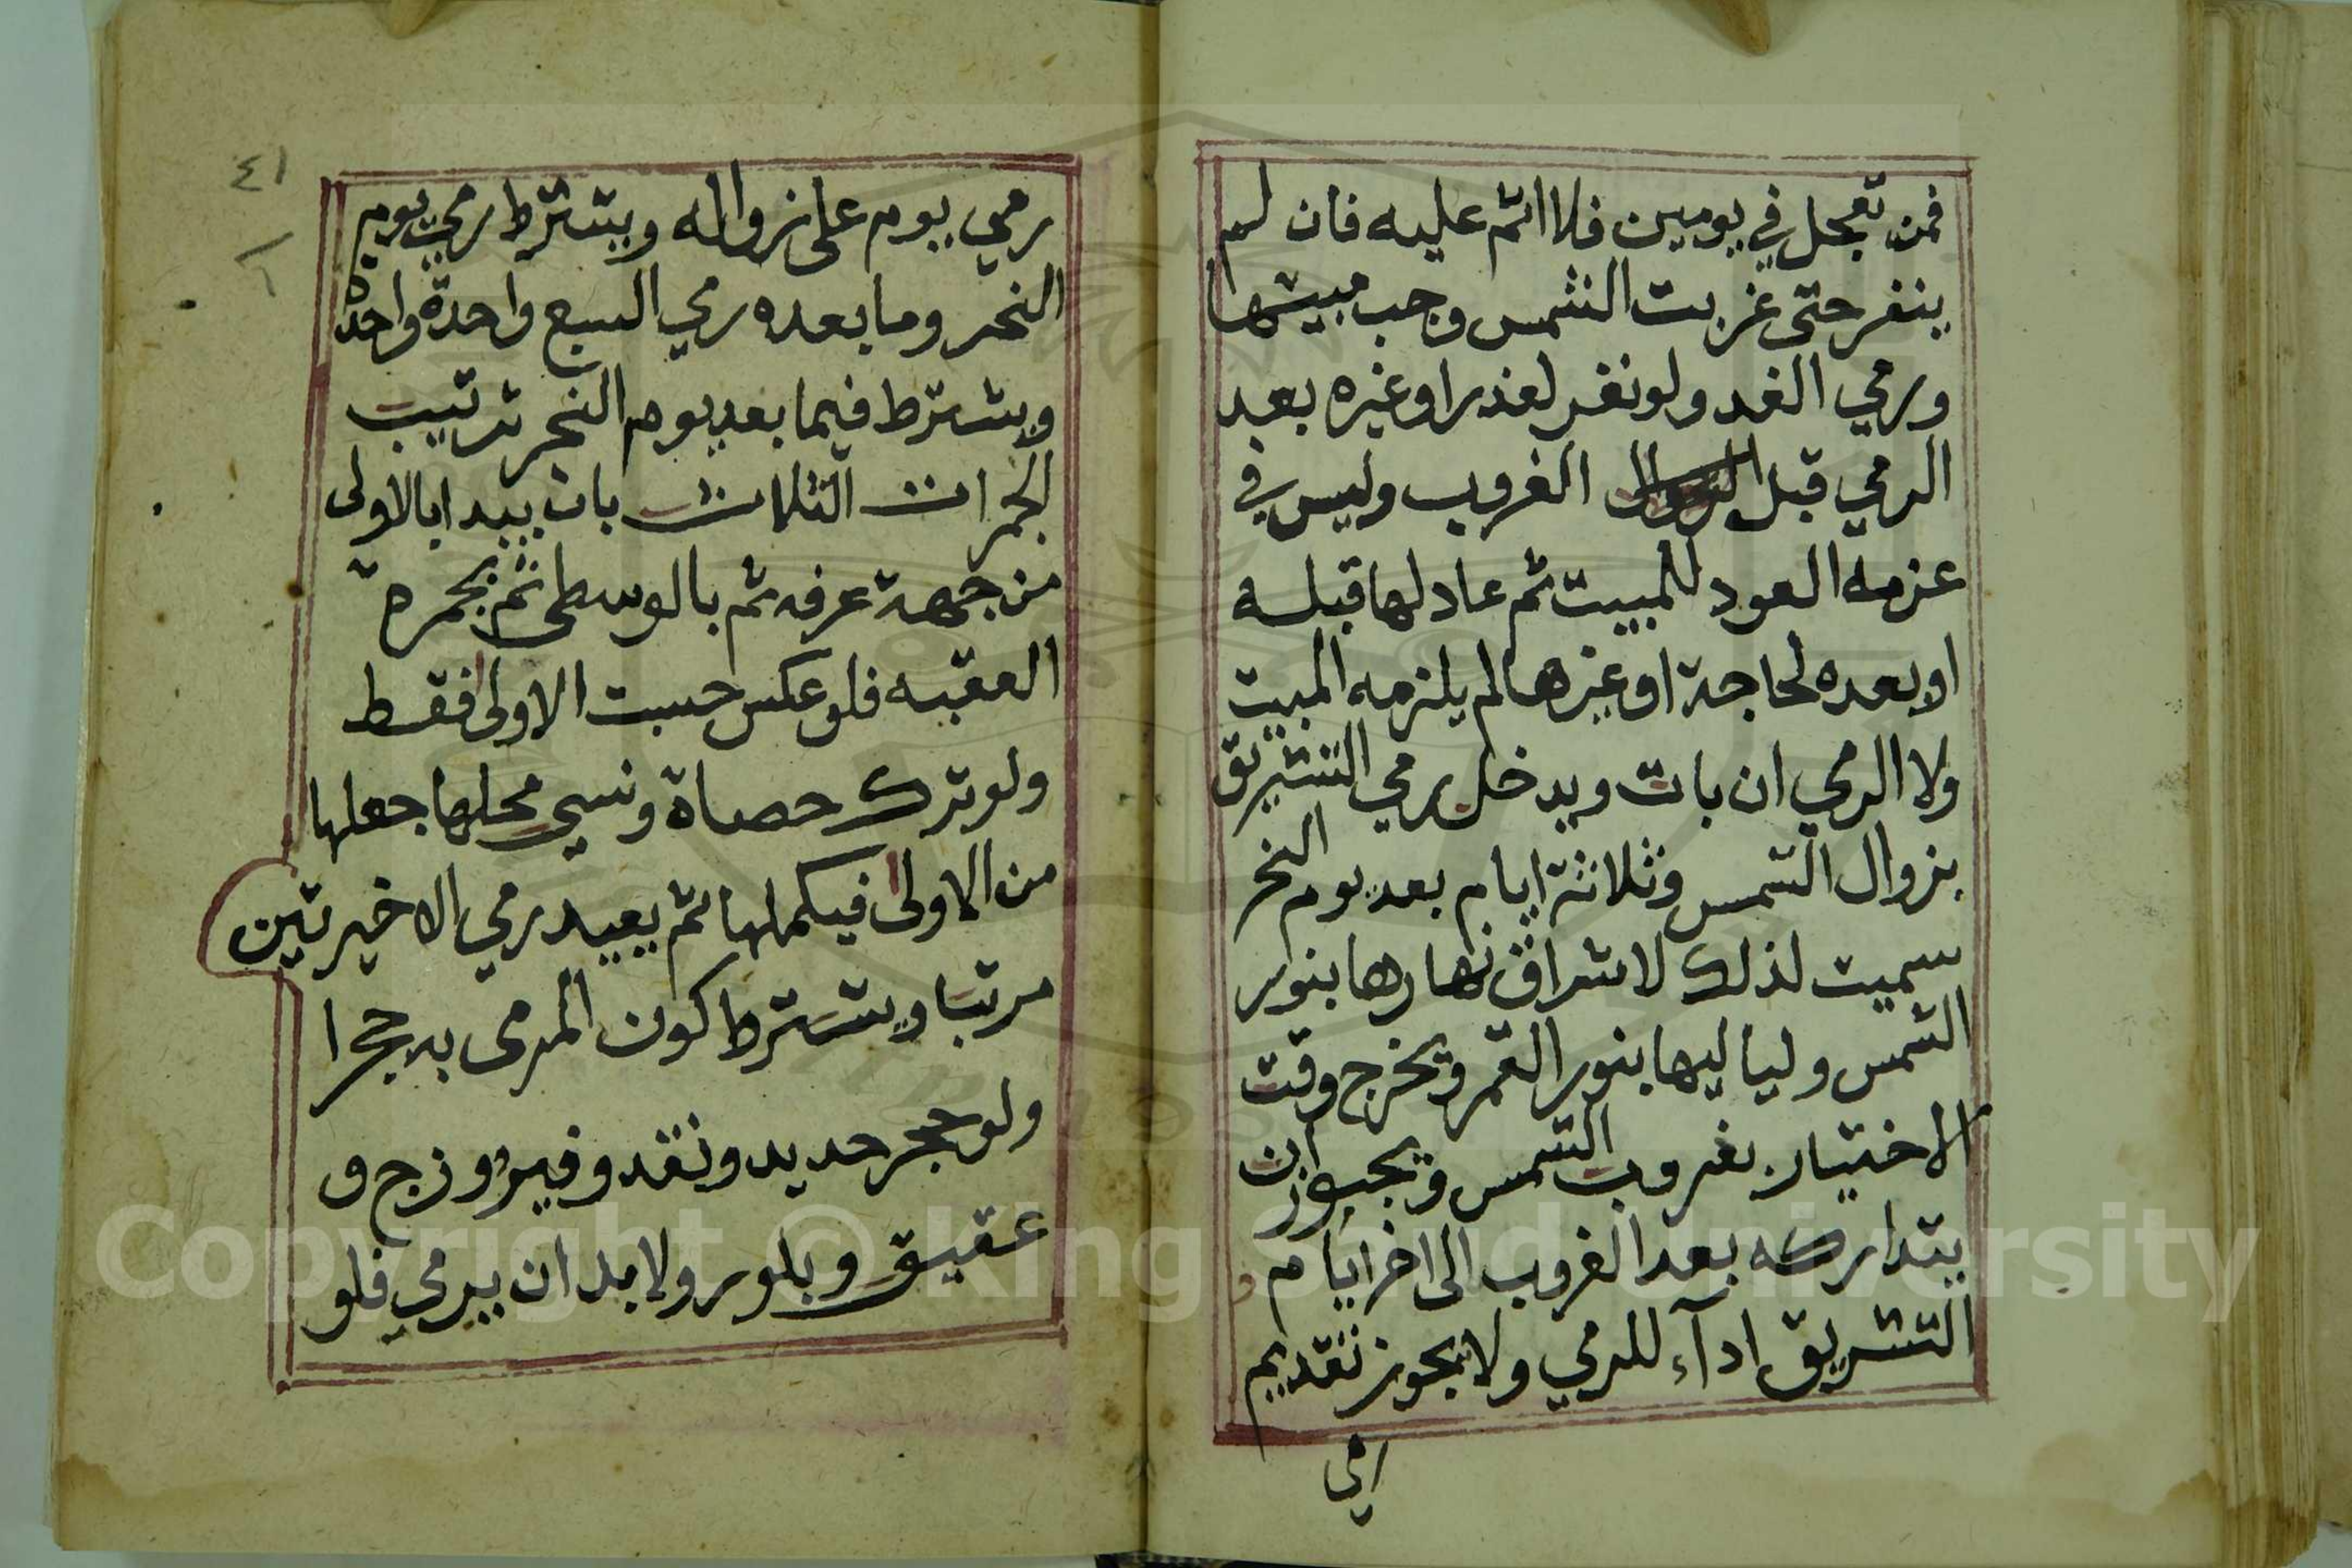 فمن تعجل في يومين فلا اثم عليه فان لم
ينفر حتى غربت الشمس وجب مبيتها
ورمي الغد ولو نفر لعذر او غيره بعد
الرمي قبل الغروب وليس في
عزمه العود للمبيت ثم عاد لها قبله
او بعده لحاجة او غيرها لم يلزمه المبيت
ولا الرمي ان بات ويدخل رمي التشريق
بزوال الشمس وثلاثة ايام بعد يوم النحر
سميت لذلك لاشراق نهارها بنور
الشمس ولياليها بنور القمر ويخرج وقت
الاختيار بغروب الشمس ويجوز ان
يتداركه بعد الغروب الى اخر ايام
التشريق اداء للرمي ولا يجوز تقديم
٤١
رمي يوم على زواله ويشترط رمي يوم
النحر وما بعده رمي السبع واحدة واحدة
ويشترط فيما بعد يوم النحر ترتيب
الجمرات الثلاث بان يبدا بالاولى
من جهة عرفه ثم بالوسطى ثم بجمرة
العقبه فلو عكس حسبت الاولى فقط
ولو ترك حصاة ونسي محلها جعلها
من الاولى فيكملها ثم يعيد رمي الاخيرتين
مرتبا ويشترط كون المرمى به حجرا
ولو حجر حديد ونقد وفيروزج و
عقيق وبلور ولا بد ان يرمي فلو
Copyright © King Saud University